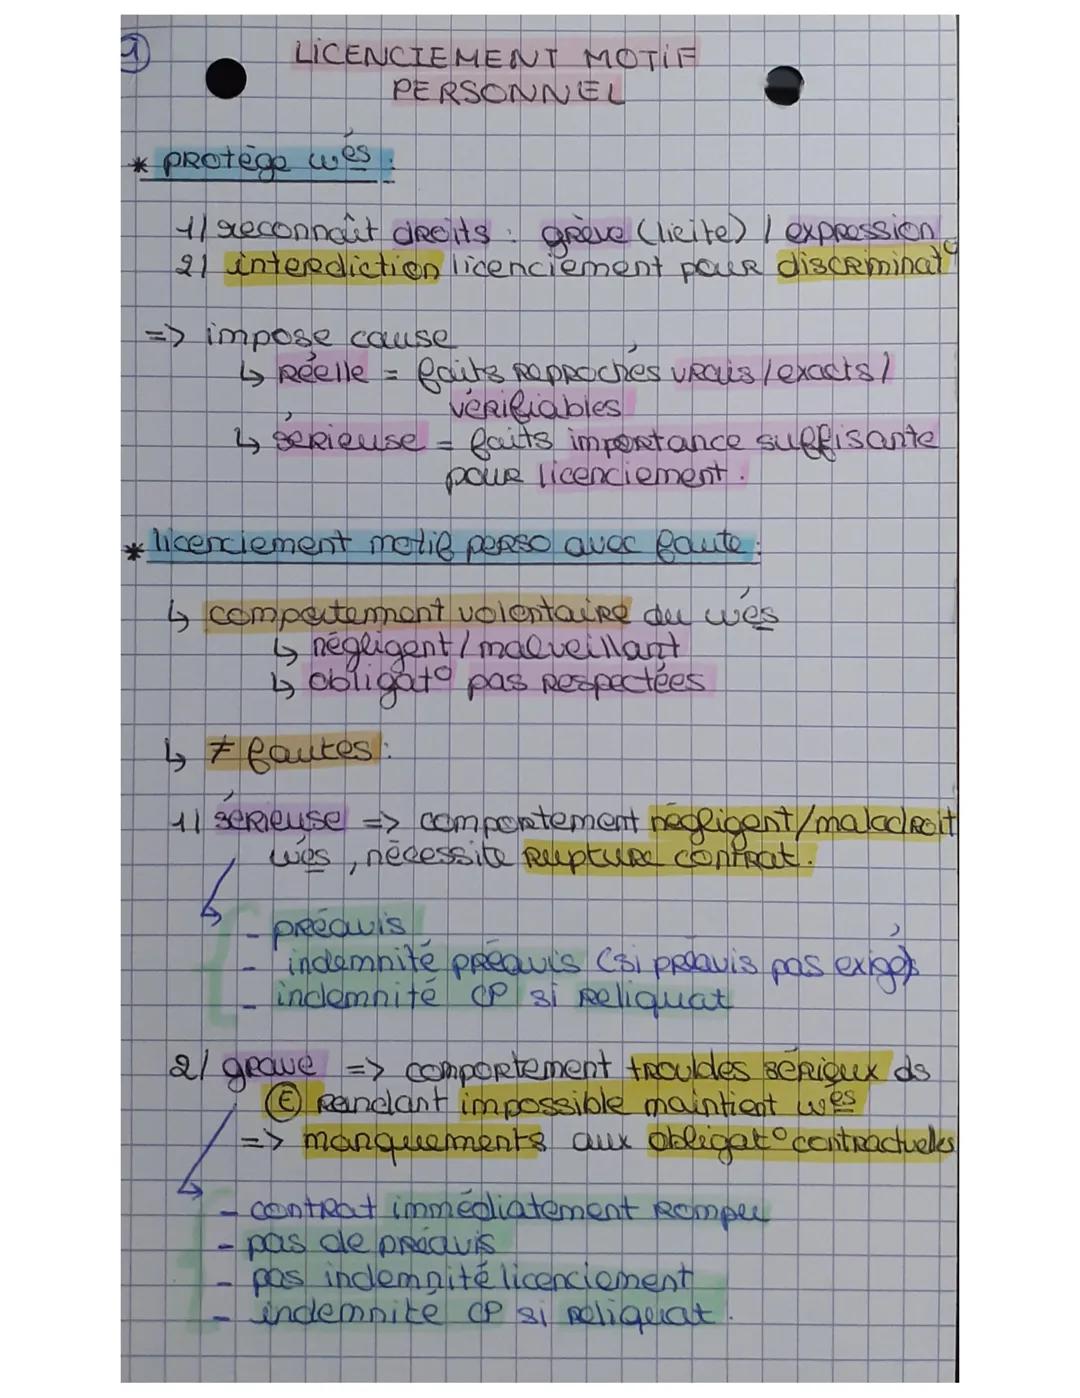 1
LICENCIEMENT MOTIF
PERSONNEL
* protège wés :
1/ reconnaît droits : grève (licite) / expression
2/ interdiction licenciement pour discriminat°
=> impose cause
↳ Réelle = faits reprochés vrais / exacts /
vérifiables
↳ sérieuse = faits importance suffisante
pour licenciement.
* licenciement motif perso avec faute :
↳ comportement volontaire du wés
↳ négligent / malveillant
↳ obligat° pas respectées
↳ ≠ fautes :
1/ sérieuse => comportement négligent/maladroit
wés, nécessite rupture contrat.
- préavis
- indemnité préavis (si préavis pas exigé)
- indemnité CP si reliquat
2/ grave => comportement troubles sérieux ds
(E) rendant impossible maintient wés
=> manquements aux obligat° contractuelles
- contrat immédiatement rompu
- pas de préavis
- pas indemnité licenciement
- indemnité CP si reliquat.